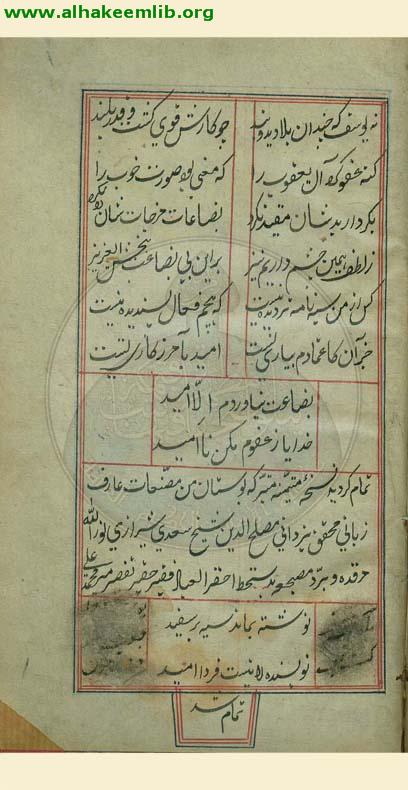 www.alhakeemlib.org
نه یوسف که چندان بلا دید و بند چو کارش قوی کشت و قدر بلند
کنه عفو کرد آل یعقوب را که معنی بود صورت خوب را
بکردار بدشان مقید نکرد بضاعات مزجات شان رد نکرد
ز لطف همین چشم داریم نیز براین بی بضاعت ببخش ای عزیز
کس از من سیه نامه تر دیده نیست که هیچم فعال پسندیده نیست
جز آن کاعتمادم بیاری تست امید بآمرزکاری تست
بضاعت نیاوردم الّا امید
خدایا ز عفوم مکن ناامید
تمام کردید نسخهٔ متیمنه متبرکه بوستان من مصنفات عارف
ربانی محقق یزدانی مصلح الدین شیخ سعدی شیرازی نور الله
مرقده و برد مضجعه بدستخط احقر العباد فقیر حقیر میر محمد علی
نوشته بماند سیه بر سفید
نویسنده را نیست فردا امید
تمام شد